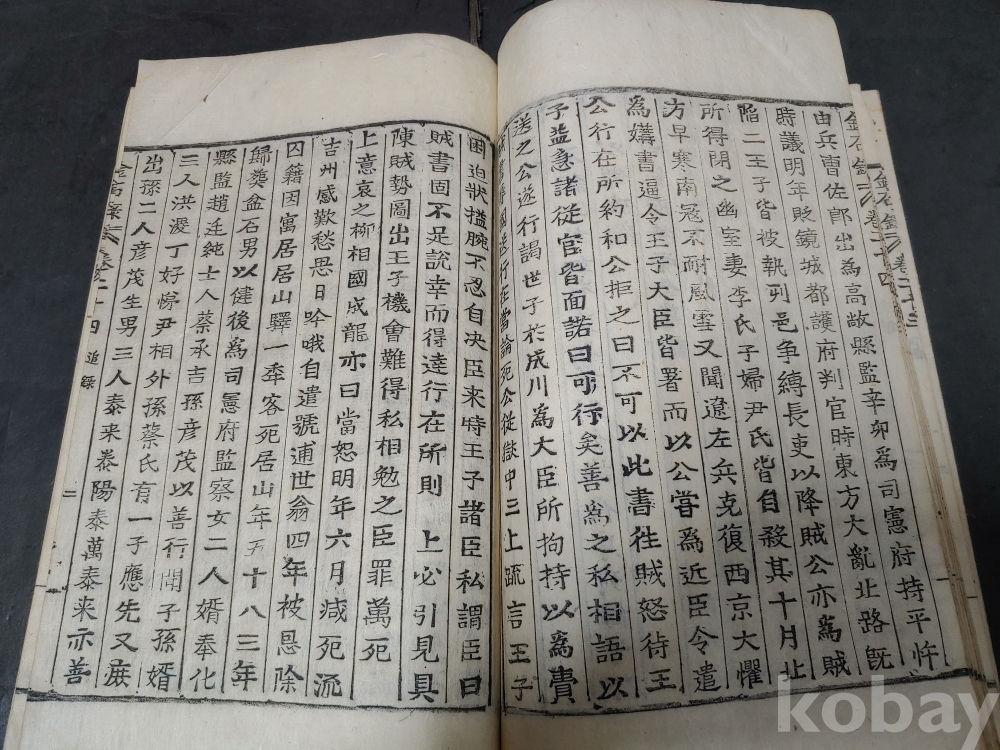 由兵曹佐郎出為高敞縣監辛卯為司憲府持平忤
時議明年貶鏡城都護府判官時東方大亂北路旣
陷二王子皆被執列邑爭縛長吏以降賊公亦為賊
所得閉之幽室妻李氏子婦尹氏皆自殺其十月北
方早寒南冦不耐風雪又聞遼左兵克復西京大懼
為媾書逼令王子大臣皆署而以公嘗為近臣令遣
公行在所約和公拒之曰不可以此書往賊怒待王
子益急諸從官皆面諾曰可行矣善為之私相語以
送之公遂行謁世子於成川為大臣所拘持以為費
論死公從獄中三上疏言王子
困迫狀搤腕不忍自决臣来時王子諸臣私謂臣曰
賊書固不足說幸而得達行在所則 上必引見具
陳賊勢圖出王子機會難得私相勉之臣罪萬死
上意哀之柳相國成龍亦曰當恕明年六月减死流
吉州感歎愁思日吟哦自遣號逋世翁四年被恩除
囚籍因寓居居山驛一年客死居山年五十八三年
歸葬盆石男以健後為司憲府監察女二人婿奉化
縣監趙廷純士人蔡承吉孫彦茂以善行聞子孫婿
三人洪濅丁好㥬尹相外孫蔡氏有一子應先又庶
出孫二人彦茂生男三人泰来泰陽泰萬泰来亦善
卷之二十四 追錄 二
kobay